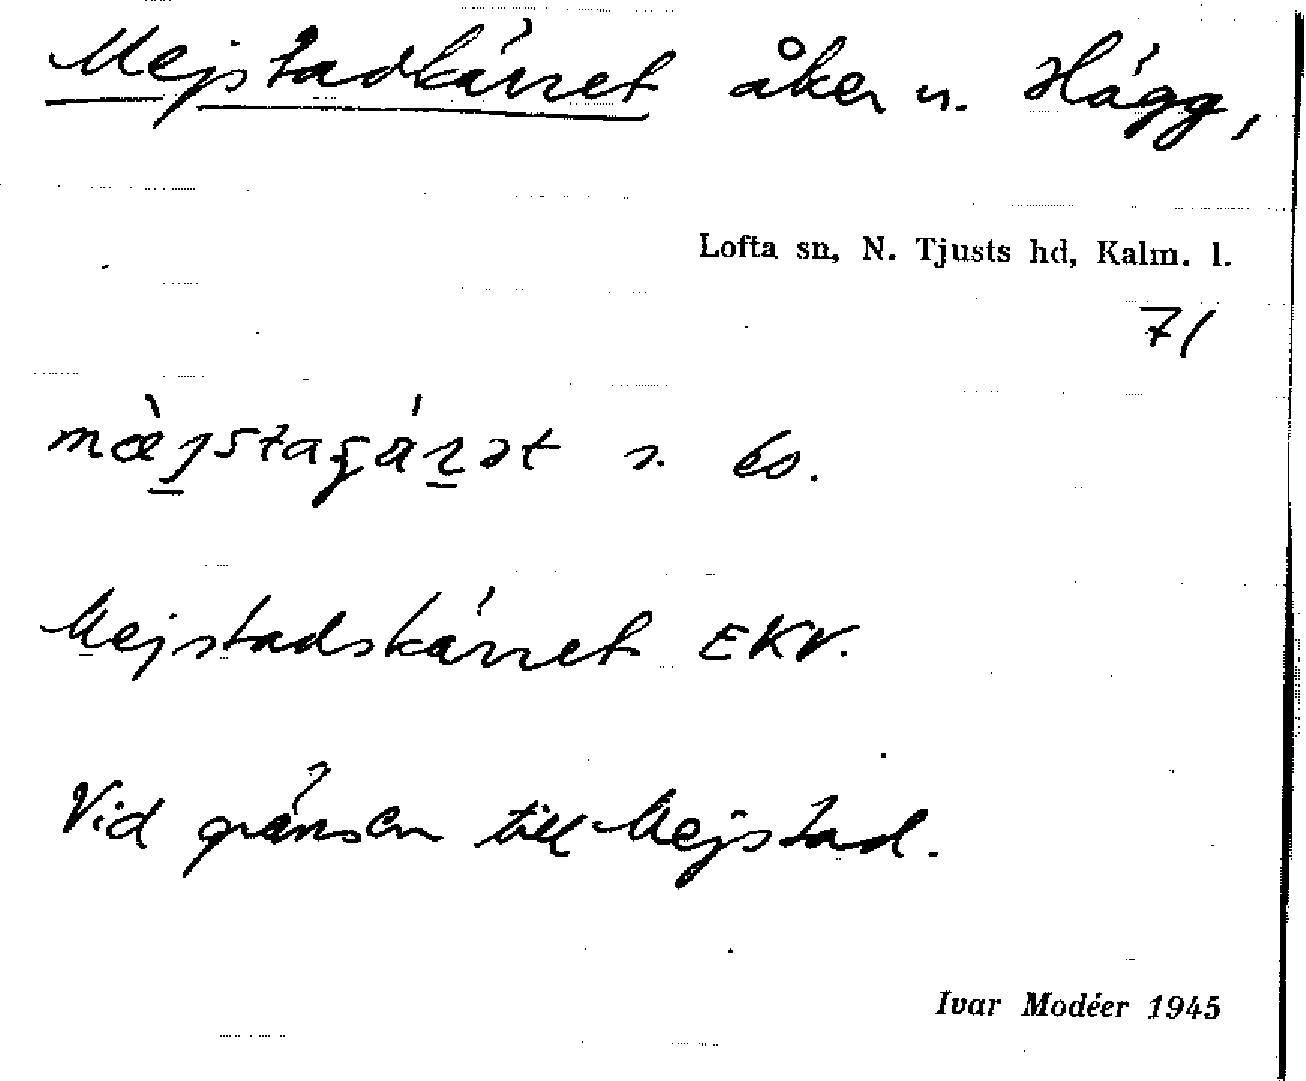 Mejstadkärret åker n. Hägg,
Lofta sn, N. Tjusts hd, Kalm. l.
71
Mejstadskärret EKV.
Vid gränsen till Mejstad.
Ivar Modéer 1945